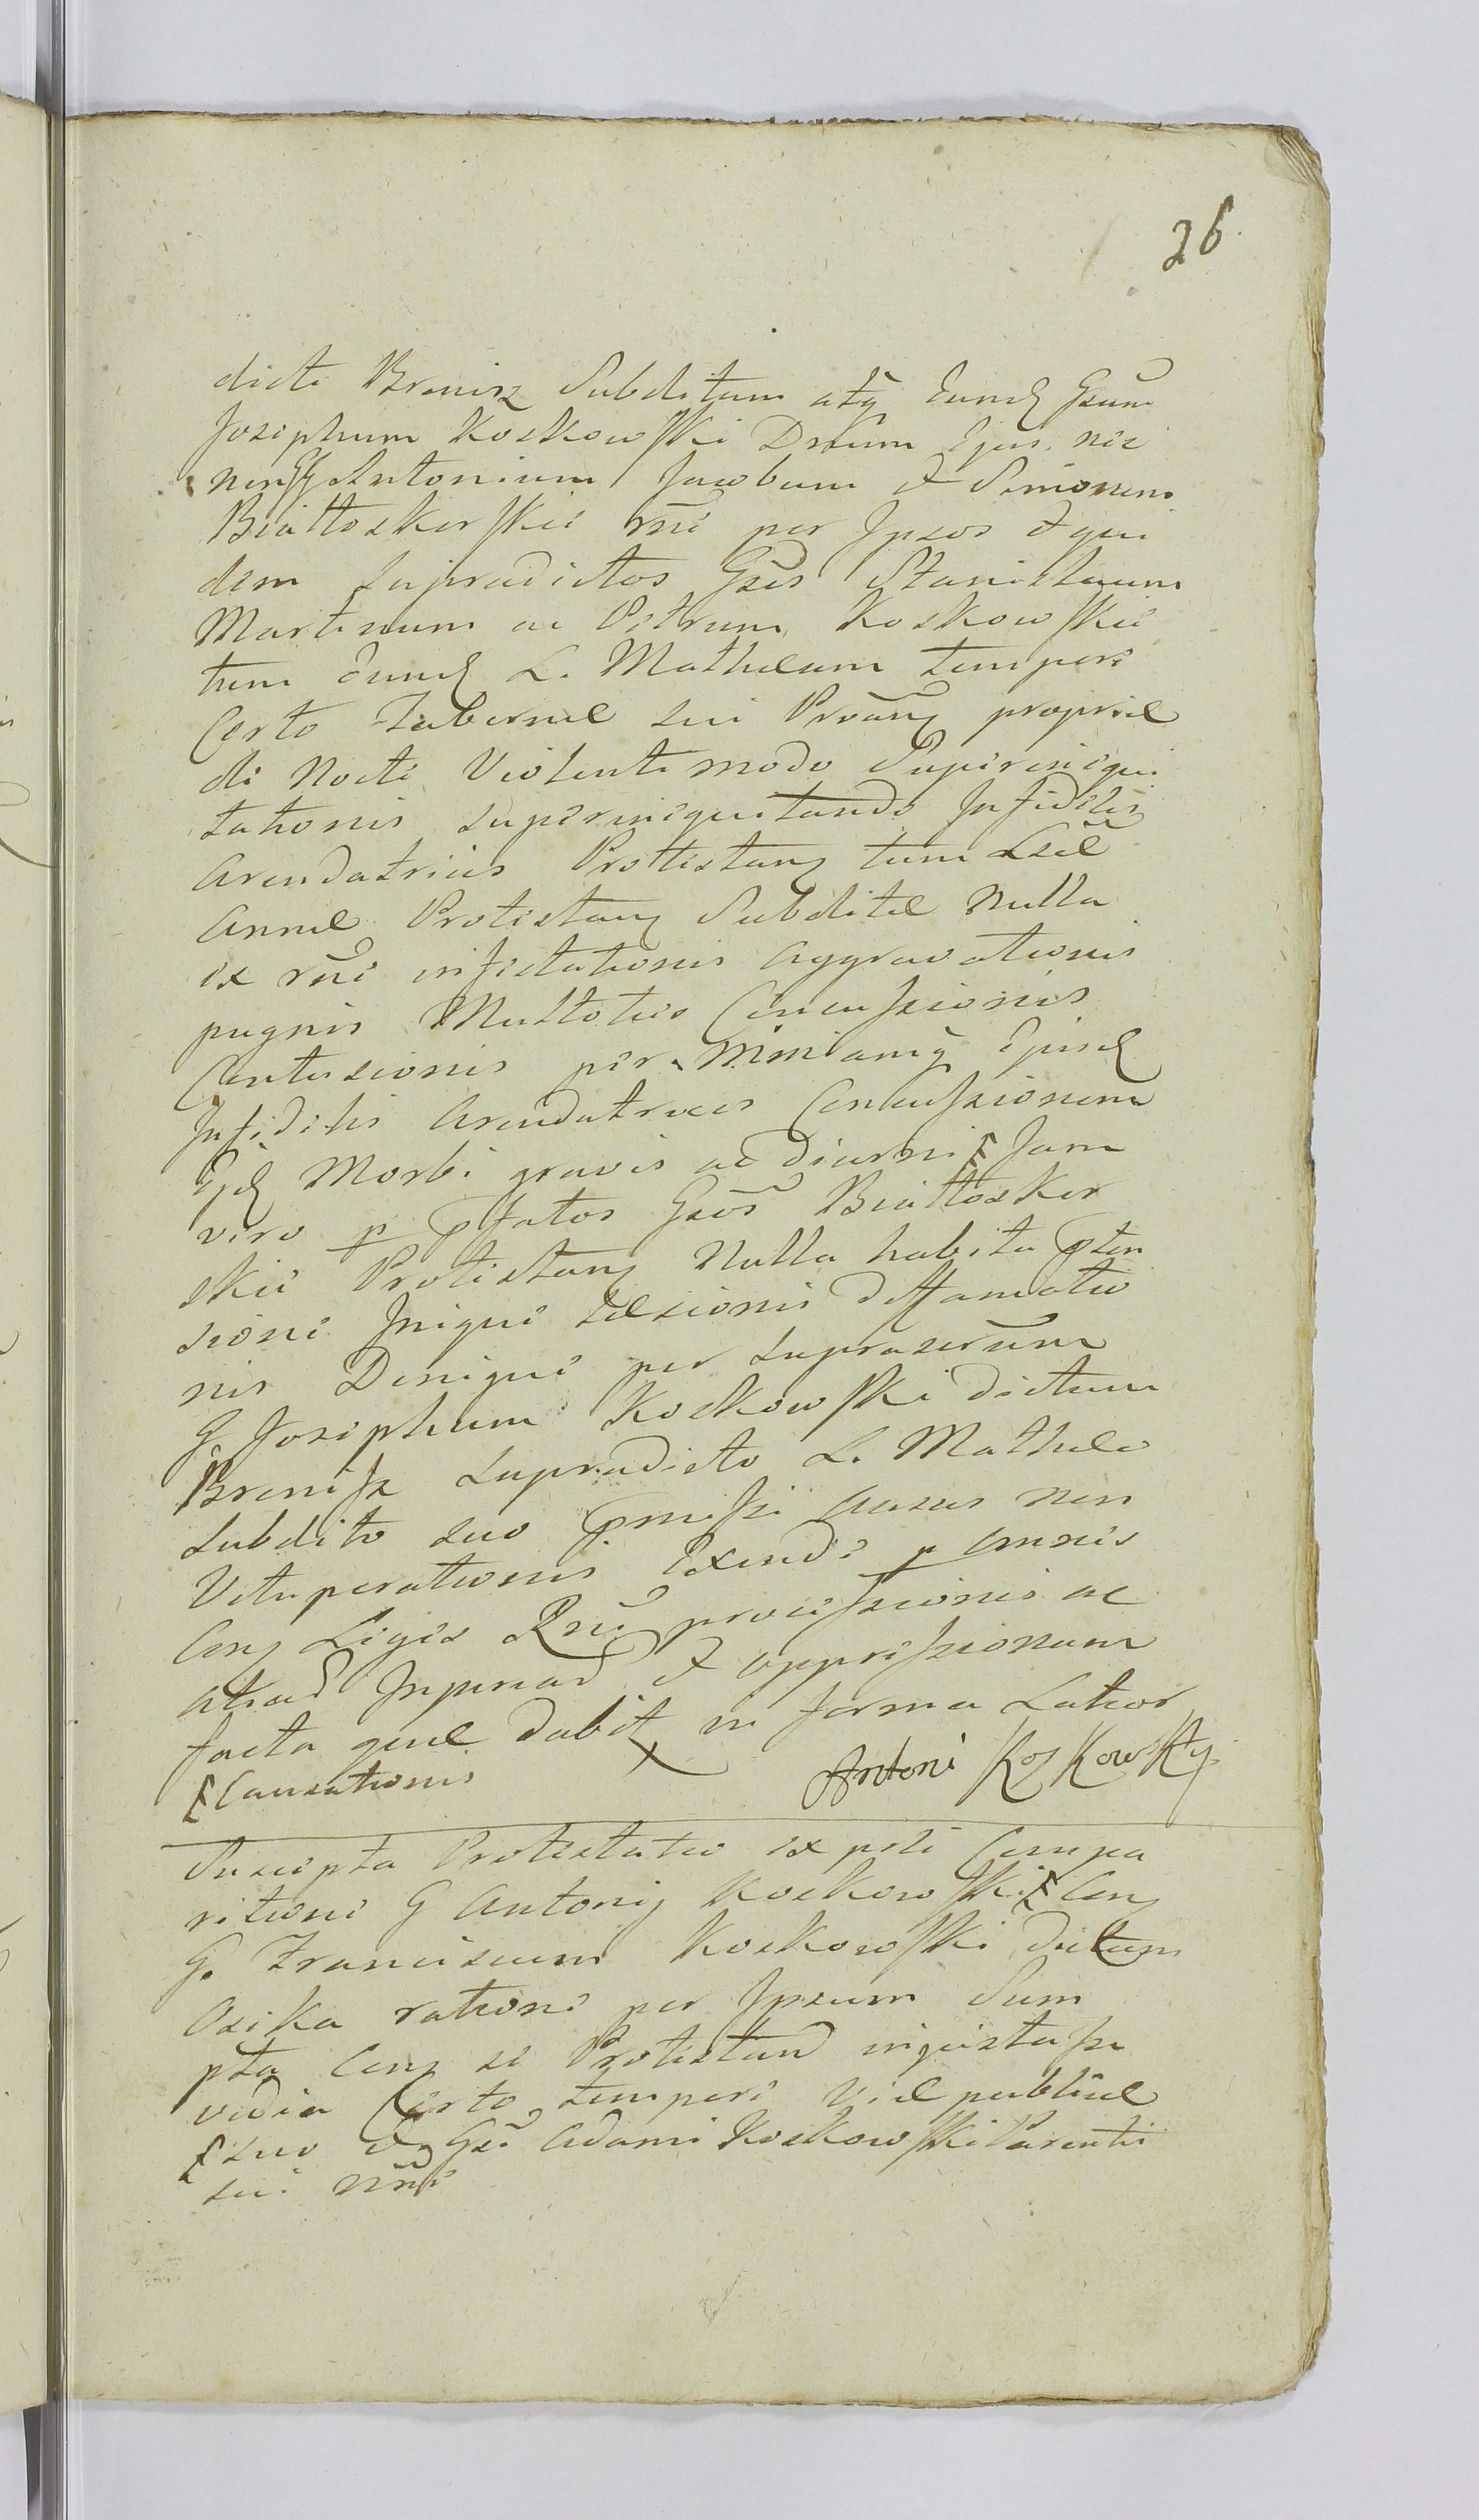 26
dicti Brenisz Subditum atq̃ Eund Gsum
Josephum Koskowski Dnum Ejus nec
non GG Antonium Jacobum et Simonem
Białłoskorskie rñe per Ipsos equi
dem supradictos Gses Stanislaum
Martinum ac Petrum Koskowskie
tum Eund L. Mathaeum tempore
Certo Tabernae sui propriae
de Nocte Violente modo Superinequi
tationis superinequitando Infidelis
Arendatricis Protestan tum Lsae
Annae Protestan Subditae Nulla
ex rñe infestationis Aggravationis
pugnis Multoties Concussionis
Contusionis per Nimiamq̃ Ejusd
Infidelis Arendatricis Concussionem
Morbi gravis ac diurni Jam
vero p pfatos Gsos Białłoskor
skie Protestan Nulla habita pten
sione Inique Laesionis diffamatio
nis Denique per suprascrum
G Josephum Koskowski dictum
Brenisz supradicto L. Mathaeo
subdito suo pmissi ausus non
Vituperationis Exinde p omnes
Con Leges Rni processionis ac
aliad Injuriad et oppressionum
facta quae dabit in forma Latior
Causationis Antoni Koskowsky
Suscepta Protestatio ex psli Compa
ritione G Antonij Koskowski Con
G. Franciscum Koskowski dictum
Osika ratione per Ipsum Sum
pta Con se Protestand injusta In
vidia Certo tempore Viae publicae
suo et Gsi Adami Koskowski Parentis
sui Nñe